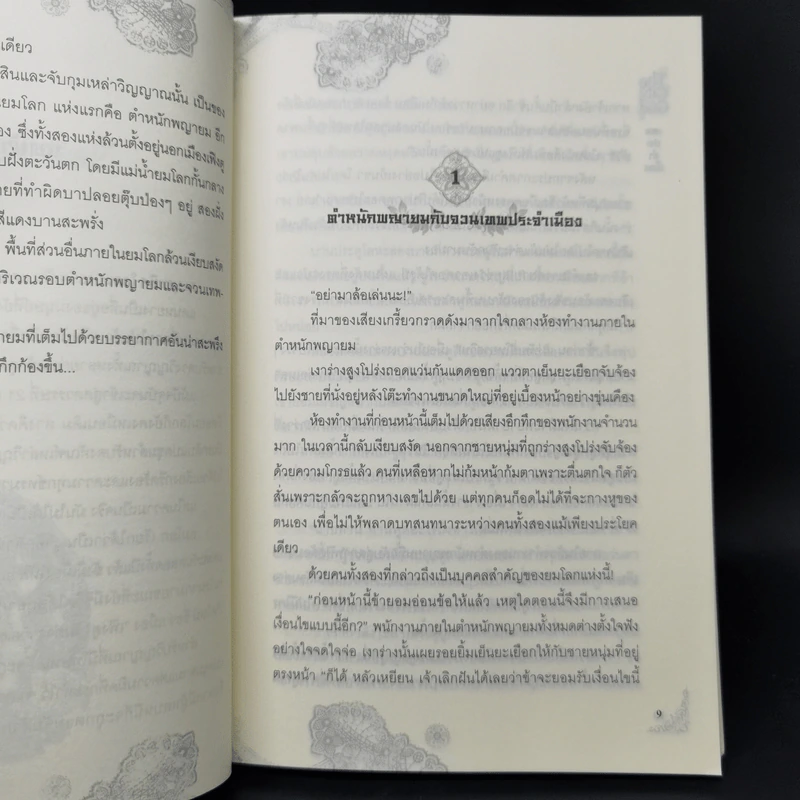 เดียว
สินและจับกุมเหล่าวิญญาณนั้น เป็นของ
ยมโลก แห่งแรกคือ ตำหนักพญายม อีก
ซึ่งทั้งสองแห่งล้วนตั้งอยู่นอกเมืองเฟิงตู
ฝั่งตะวันตก โดยมีแม่น้ำยมโลกกั้นกลาง
ที่ทำผิดบาปลอยตุ๊บป่องๆ อยู่ สองฝั่ง
สีแดงบานสะพรั่ง
พื้นที่ส่วนอื่นภายในยมโลกล้วนเงียบสงัด
บริเวณรอบตำหนักพญายมและจวนเทพ-
ยมที่เต็มไปด้วยบรรยากาศอันน่าสะพรึง
กึกก้องขึ้น...
1
ตำหนักพญายมกับจวนเทพประจำเมือง
“อย่ามาล้อเล่นนะ!”
ที่มาของเสียงเกรี้ยวกราดดังมาจากใจกลางห้องทำงานภายใน
ตำหนักพญายม
เงาร่างสูงโปร่งถอดแว่นกันแดดออก แววตาเย็นยะเยือกจับจ้อง
ไปยังชายที่นั่งอยู่หลังโต๊ะทำงานขนาดใหญ่ที่อยู่เบื้องหน้าอย่างขุ่นเคือง
ห้องทำงานที่ก่อนหน้านี้เต็มไปด้วยเสียงอึกทึกของพนักงานจำนวน
มาก ในเวลานี้กลับเงียบสงัด นอกจากชายหนุ่มที่ถูกร่างสูงโปร่งจับจ้อง
ด้วยความโกรธแล้ว คนที่เหลือหากไม่ก้มหน้าก้มตาเพราะตื่นตกใจ ก็ตัว
สั่นเพราะกลัวจะถูกหางเลขไปด้วย แต่ทุกคนก็อดไม่ได้ที่จะกางหูของ
ตนเอง เพื่อไม่ให้พลาดบทสนทนาระหว่างคนทั้งสองแม้เพียงประโยค
เดียว
ด้วยคนทั้งสองที่กล่าวถึงเป็นบุคคลสำคัญของยมโลกแห่งนี้!
“ก่อนหน้านี้ข้ายอมอ่อนข้อให้แล้ว เหตุใดตอนนี้จึงมีการเสนอ
เงื่อนไขแบบนี้อีก?” พนักงานภายในตำหนักพญายมทั้งหมดต่างตั้งใจฟัง
อย่างใจจดใจจ่อ เงาร่างนั้นเผยรอยยิ้มเย็นยะเยือกให้กับชายหนุ่มที่อยู่
ตรงหน้า “ก็ได้ หลัวเหยียน เจ้าเลิกฝันได้เลยว่าข้าจะยอมรับเงื่อนไขนี้
9